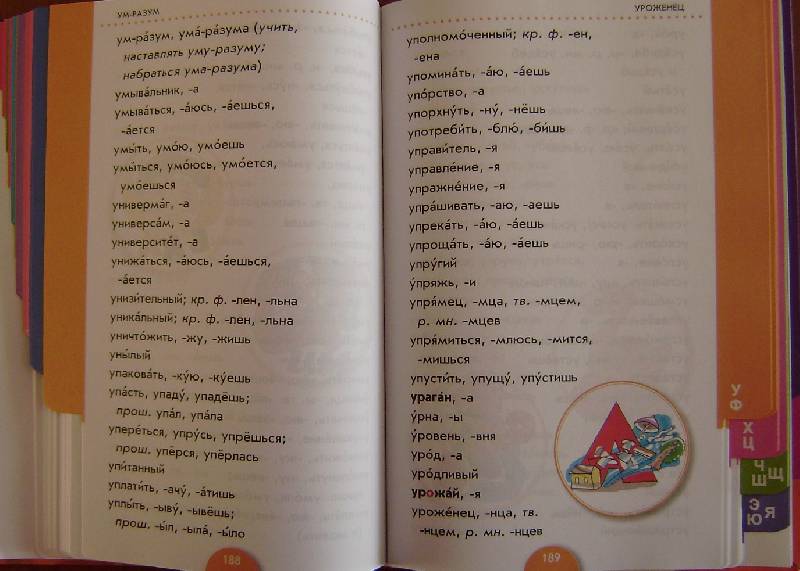 УМ-РАЗУМ
ум-ра́зум, ума́-ра́зума (учить,
наставлять уму-разуму;
набраться ума-разума)
умыва́льник, -а
умыва́ться, -а́юсь, -а́ешься,
-а́ется
умы́ть, умо́ю, умо́ешь
умы́ться, умо́юсь, умо́ется,
умо́ешься
универма́г, -а
универса́м, -а
университе́т, -а
унижа́ться, -а́юсь, -а́ешься,
-а́ется
унизи́тельный; кр. ф. -лен, -льна
уника́льный; кр. ф. -лен, -льна
уничто́жить, -жу, -жишь
уны́лый
упакова́ть, -ку́ю, -ку́ешь
упа́сть, упаду́, упадёшь;
прош. упа́л, упа́ла
упере́ться, упру́сь, упрёшься;
прош. упёрся, упёрлась
упи́танный
уплати́ть, -ачу́, -а́тишь
уплы́ть, -ыву́, -ывёшь;
прош. -ы́л, -ыла́, -ы́ло
188
УРОЖЕНЕЦ
уполномо́ченный; кр. ф. -ен,
-ена
упомина́ть, -а́ю, -а́ешь
упо́рство, -а
упорхну́ть, -ну́, -нёшь
употреби́ть, -блю́, -би́шь
управи́тель, -я
управле́ние, -я
упражне́ние, -я
упра́шивать, -аю, -аешь
упрека́ть, -а́ю, -а́ешь
упроща́ть, -а́ю, -а́ешь
упру́гий
у́пряжь, -и
упря́мец, -мца, тв. -мцем,
р. мн. -мцев
упря́миться, -млюсь, -мится,
-мишься
упусти́ть, упущу́, упу́стишь
урага́н, -а
у́рна, -ы
у́ровень, -вня
уро́д, -а
уро́дливый
урожа́й, -я
уроже́нец, -нца, тв.
-нцем, р. мн. -нцев
189
У
Ф
Х
Ц
Ч
Ш Щ
Э
Ю Я